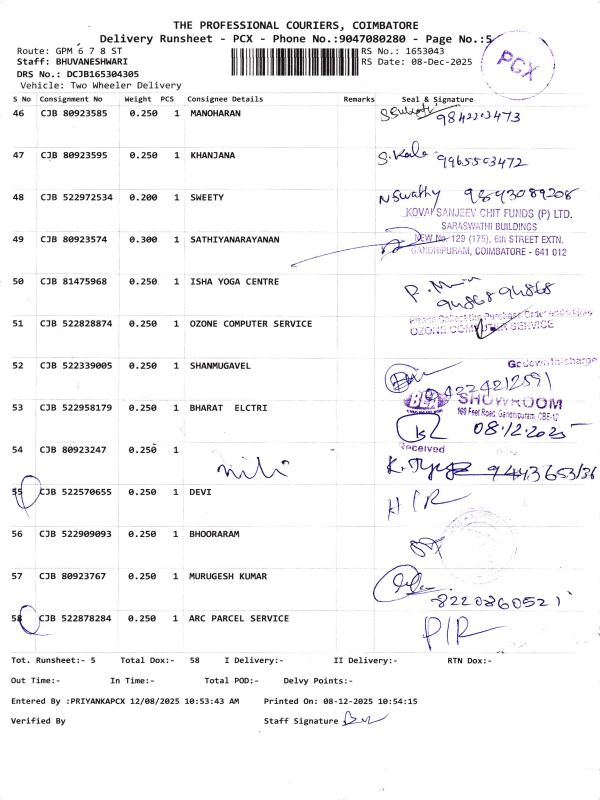 THE PROFESSIONAL COURIERS, COIMBATORE
Delivery Runsheet - PCX - Phone No.:9047080280 - Page No.:5
PCX
Route: GPM 6 7 8 ST
RS No.: 1653043
Staff: BHUVANESHWARI
RS Date: 08-Dec-2025
DRS No.: DCJB165304305
Vehicle: Two Wheeler Delivery
S No Consignment No Weight PCS Consignee Details Remarks Seal & Signature
46 CJB 80923585 0.250 1 MANOHARAN 9842203473
47 CJB 80923595 0.250 1 KHANJANA S. Kala 9965503472
48 CJB 522972534 0.200 1 SWEETY N Swathy 9894308 9208
KOVAI SANJEEV CHIT FUNDS (P) LTD.
SARASWATHI BUILDINGS
49 CJB 80923574 0.300 1 SATHIYANARAYANAN NEW No. 129 (175), 6th STREET EXTN.
GANDHIPURAM, COIMBATORE - 641 012
50 CJB 81475968 0.250 1 ISHA YOGA CENTRE 94868 94868
51 CJB 522828874 0.250 1 OZONE COMPUTER SERVICE
OZONE COMPUTER SERVICE
52 CJB 522339005 0.250 1 SHANMUGAVEL
Godown In-charge
04224212591
53 CJB 522958179 0.250 1 BHARAT ELCTRI SHOWROOM
100 Feet Road, Gandhipuram, CBE-12
08.12.2025
54 CJB 80923247 0.250 1
Received
55 CJB 522570655 0.250 1 DEVI H/R
56 CJB 522909093 0.250 1 BHOORARAM
57 CJB 80923767 0.250 1 MURUGESH KUMAR
8220860521
58 CJB 522878284 0.250 1 ARC PARCEL SERVICE P/R
Tot. Runsheet:- 5 Total Dox:- 58 I Delivery:- II Delivery:- RTN Dox:-
Out Time:- In Time:- Total POD:- Delvy Points:-
Entered By :PRIYANKAPCX 12/08/2025 10:53:43 AM Printed On: 08-12-2025 10:54:15
Verified By Staff Signature